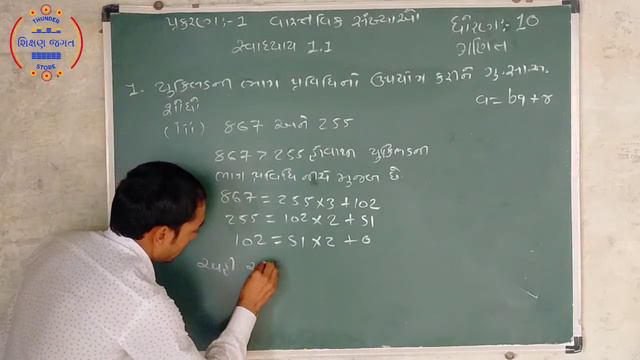 THUNDER
શિક્ષણ જગત
STORE
પ્રકરણ:-1 વાસ્તવિક સંખ્યાઓ
ધોરણ:- 10
સ્વાધ્યાય 1.1
ગણિત
1. યુક્લિડની ભાગ પ્રવિધિનો ઉપયોગ કરીને ગુ.સા.અ.
શોધો
a = bq + r
(iii) 867 અને 255
867 > 255 હોવાથી યુક્લિડની
ભાગ પ્રવિધિ નીચે મુજબ છે.
867 = 255 × 3 + 102
255 = 102 × 2 + 51
102 = 51 × 2 + 0
અહી